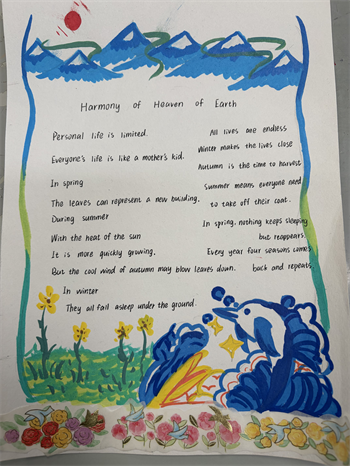 Harmony of Heaven of Earth
Personal life is limited.
Everyone's life is like a mother's kid.
In spring
The leaves can represent a new building.
During summer
With the heat of the sun
It is more quickly growing.
But the cool wind of autumn may blow leaves down.
In winter
They all fall asleep under the ground.
All lives are endless
Winter makes the lives close
Autumn is the time to harvest
Summer means everyone need
to take off their coat.
In spring, nothing keeps sleeping
but reappears.
Every year four seasons comes
back and repeats